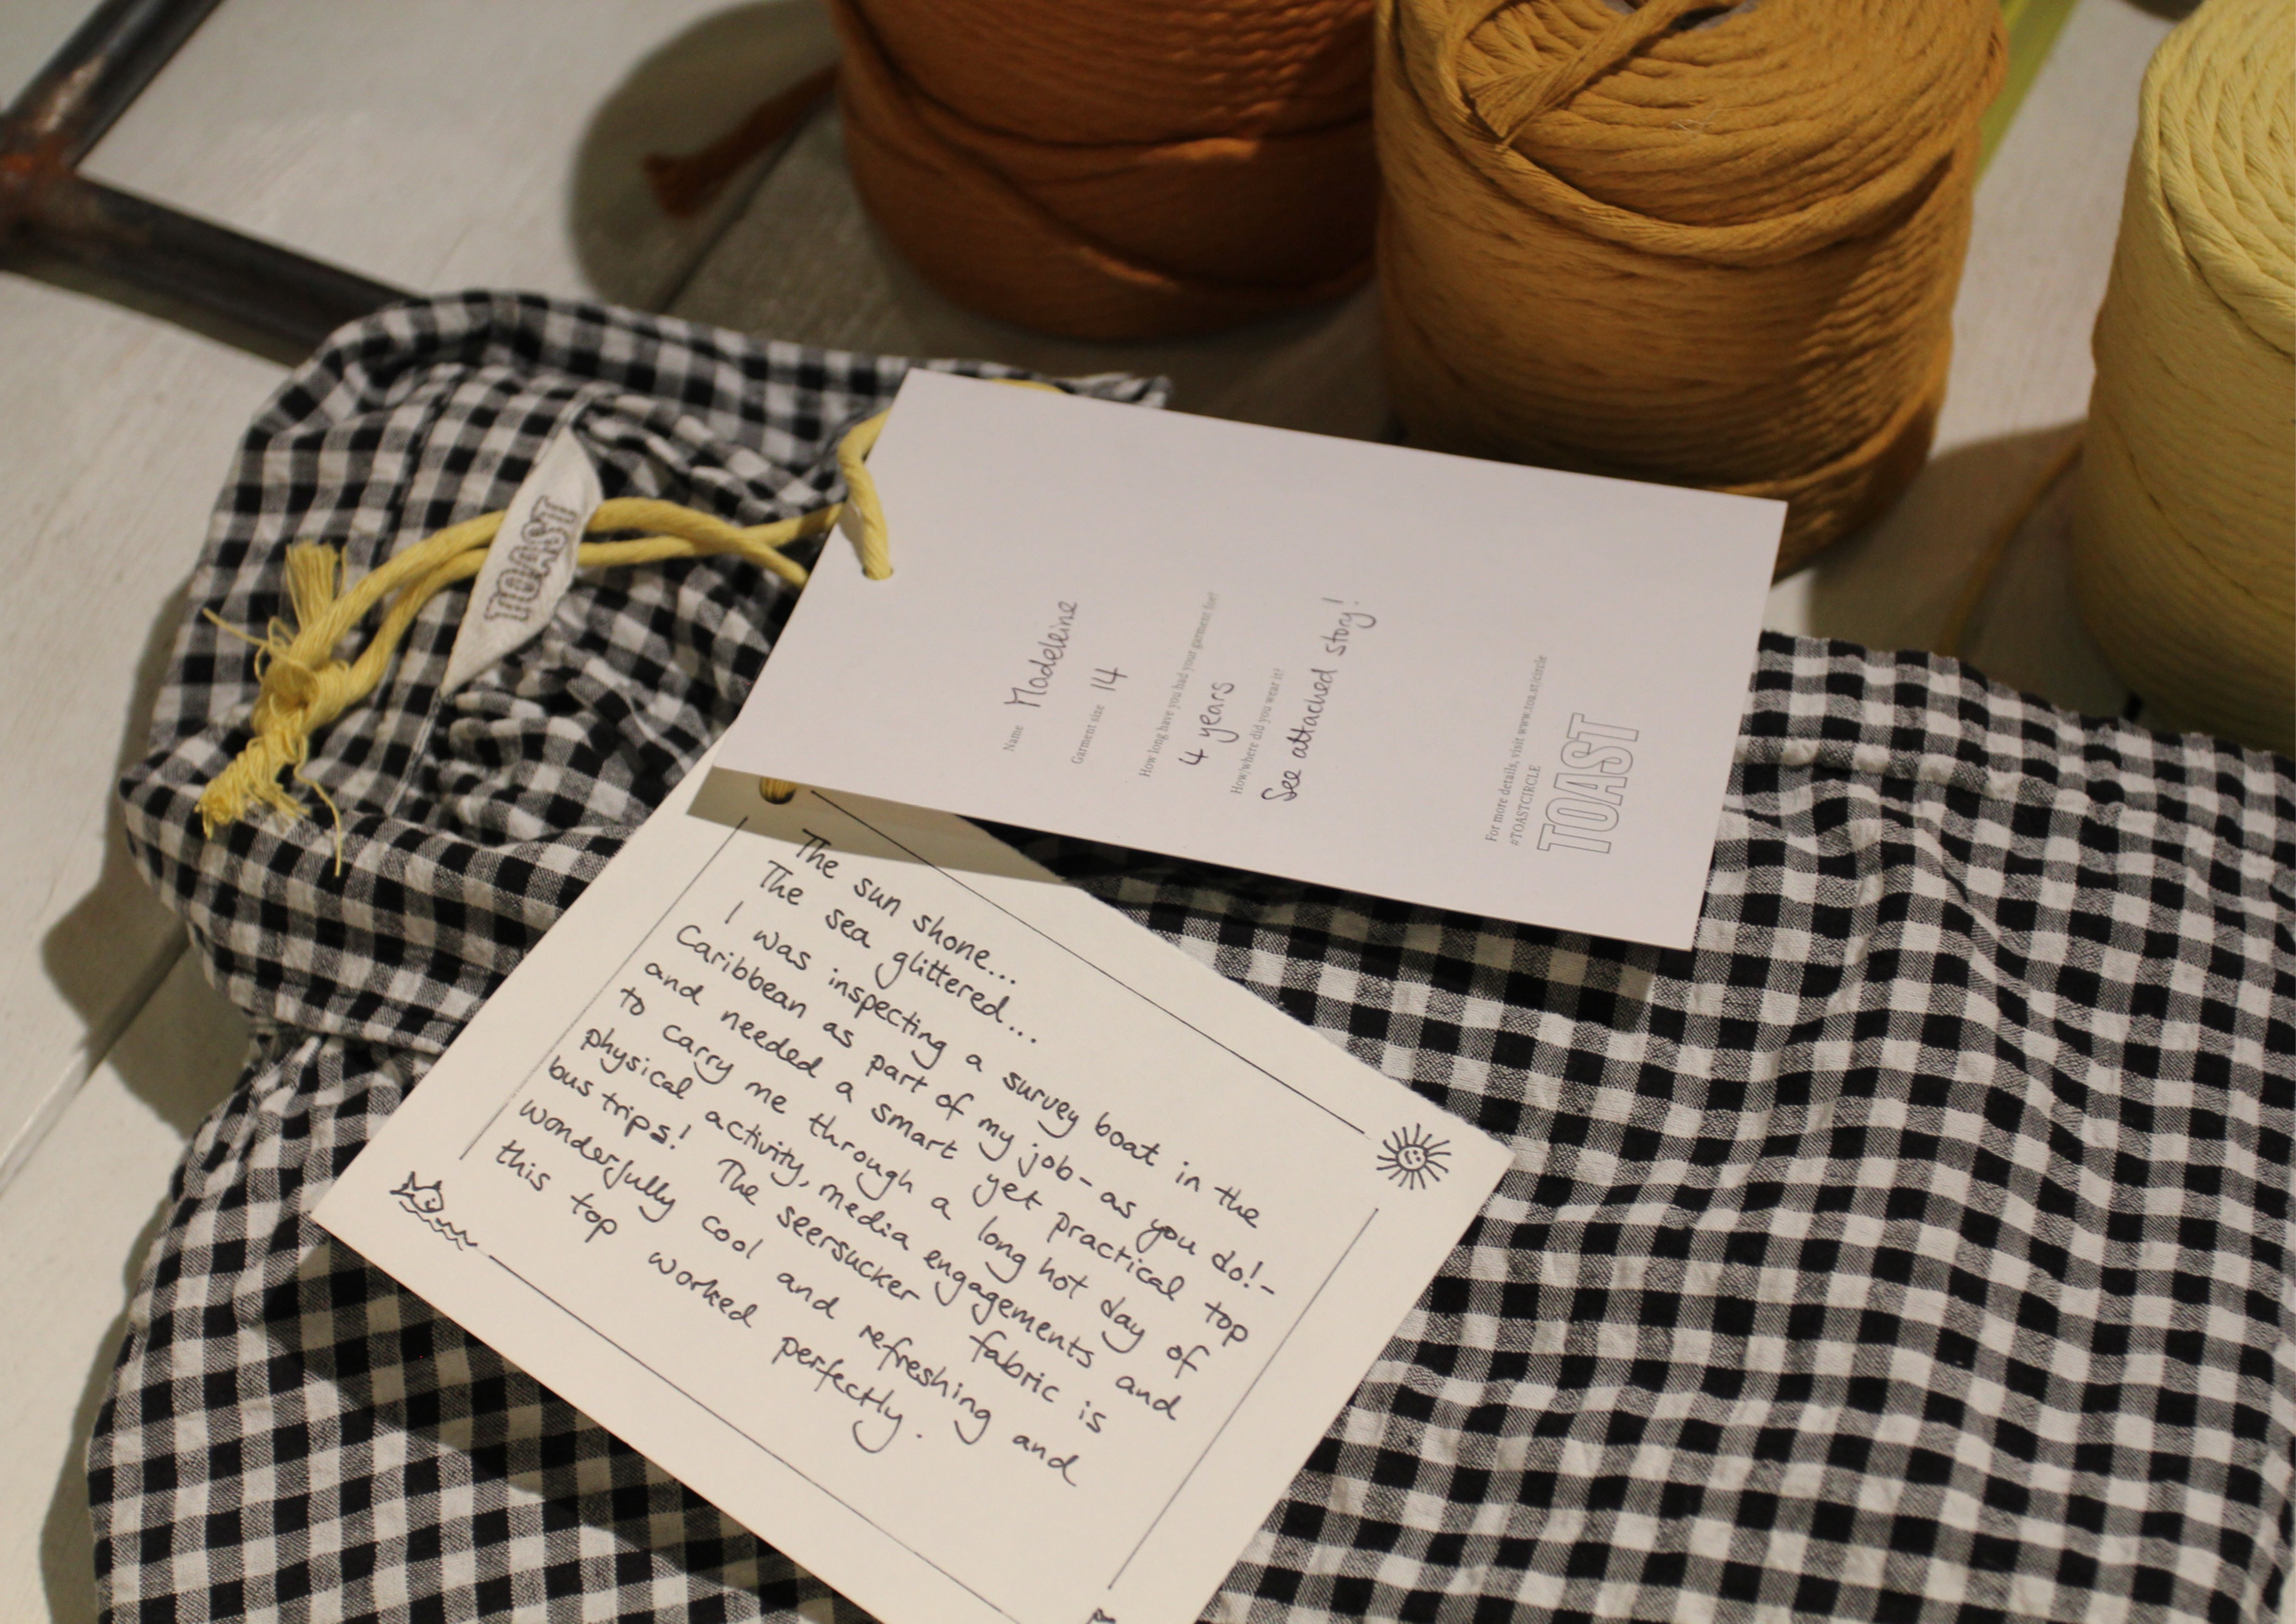 TOAST
Name Madeleine
Garment size 14
How long have you had your garment for?
4 years
How/where did you wear it?
See attached story!
For more details, visit www.toa.st/circle
#TOASTCIRCLE
TOAST
The sun shone...
The sea glittered...
I was inspecting a survey boat in the
Caribbean as part of my job - as you do! -
and needed a smart yet practical top
to carry me through a long hot day of
physical activity, media engagements and
bus trips! The seersucker fabric is
wonderfully cool and refreshing and
this top worked perfectly.